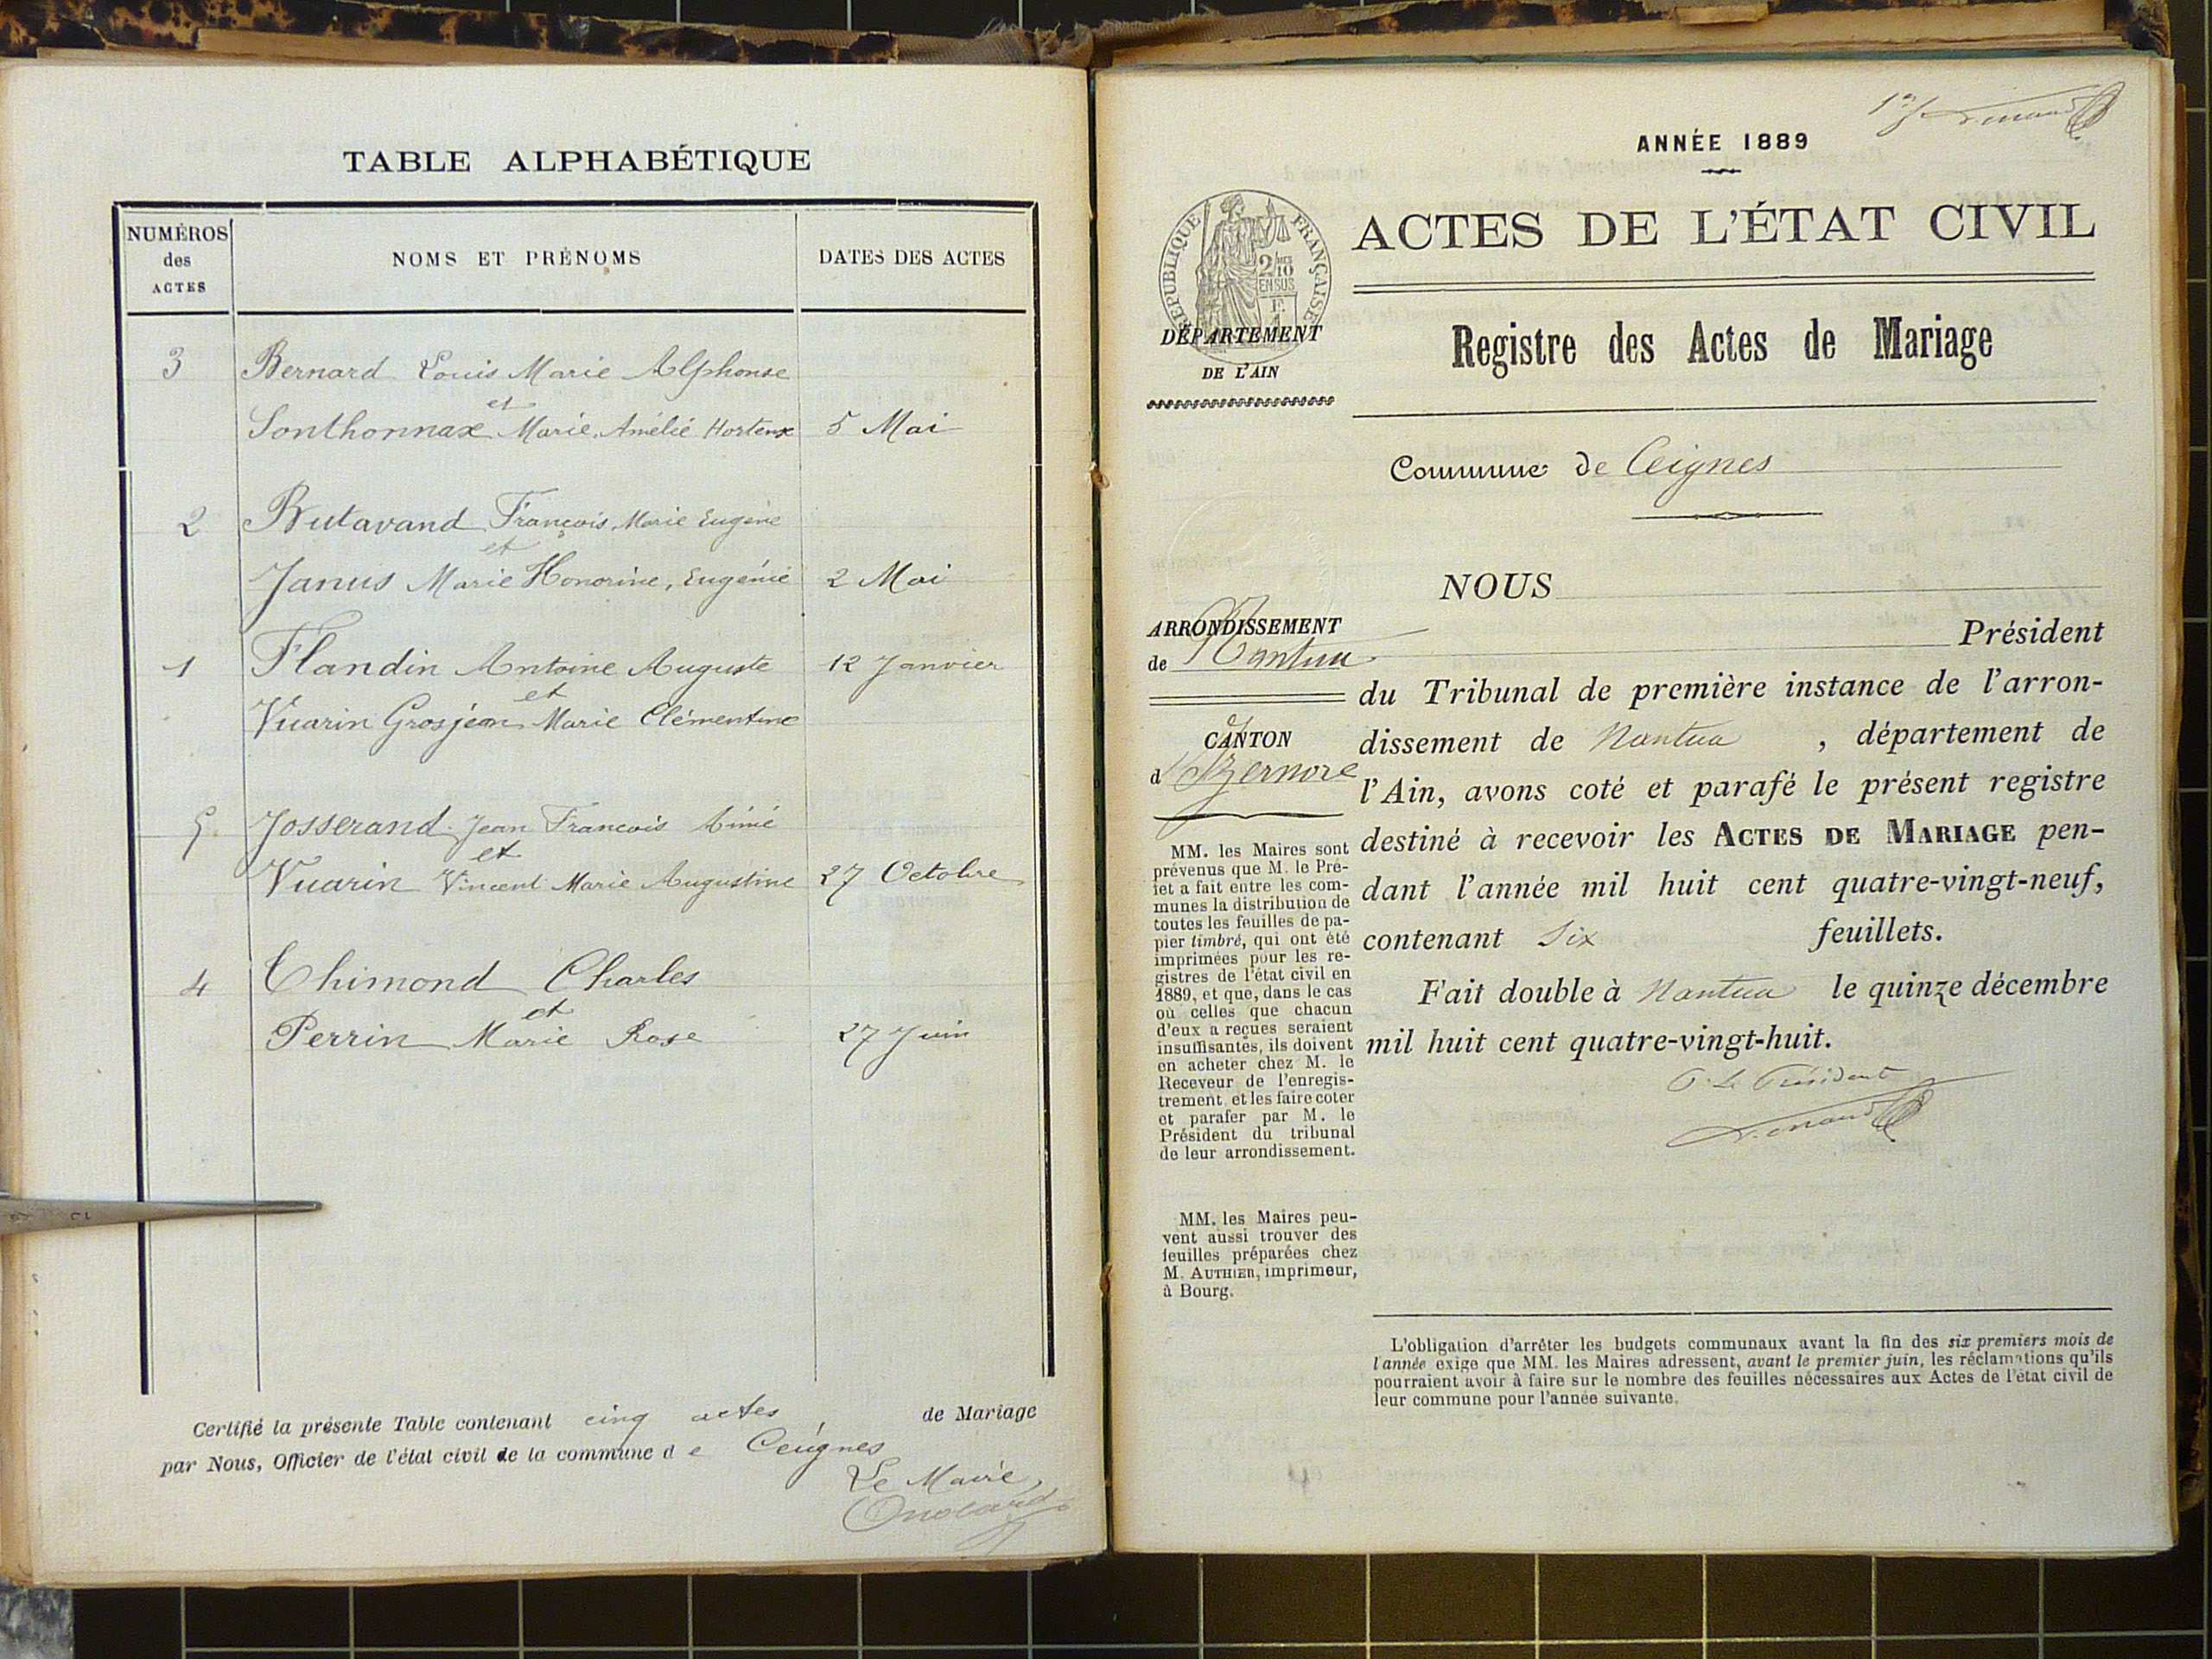 TABLE ALPHABÉTIQUE
NUMÉROS
des
ACTES
NOMS ET PRÉNOMS
DATES DES ACTES
3 Bernard Louis Marie Alphonse
et
Sonthonnax Marie, Amélie Hortense 5 Mai
2 Butavand François, Marie Eugène
et
Janus Marie Honorine, Eugénie 2 Mai
1 Flandin Antoine Auguste 12 Janvier
et
Vuarin Grosjean Marie Clémentine
5 Josserand Jean François Aimé
et
Vuarin Vincent Marie Augustine 27 Octobre
4 Thimond Charles
et
Perrin Marie Rose 27 Juin
Certifié la présente Table contenant cinq actes de Mariage
par Nous, Officier de l'état civil de la commune de Ceignes
Le Maire,
ANNÉE 1889
RÉPUBLIQUE FRANÇAISE
2/10
EN SUS
DÉPARTEMENT
DE L'AIN
ACTES DE L'ÉTAT CIVIL
Registre des Actes de Mariage
Commune de Ceignes
ARRONDISSEMENT
de Nantua
CANTON
d'Izernore
MM. les Maires sont
prévenus que M. le Pré-
fet a fait entre les com-
munes la distribution de
toutes les feuilles de pa-
pier timbré, qui ont été
imprimées pour les re-
gistres de l'état civil en
1889, et que, dans le cas
où celles que chacun
d'eux a reçues seraient
insuffisantes, ils doivent
en acheter chez M. le
Receveur de l'enregis-
trement et les faire coter
et parafer par M. le
Président du tribunal
de leur arrondissement.
MM. les Maires peu-
vent aussi trouver des
feuilles préparées chez
M. AUTHIER, imprimeur,
à Bourg.
NOUS
Président
du Tribunal de première instance de l'arron-
dissement de Nantua, département de
l'Ain, avons coté et parafé le présent registre
destiné à recevoir les ACTES DE MARIAGE pen-
dant l'année mil huit cent quatre-vingt-neuf,
contenant Six feuillets.
Fait double à Nantua le quinze décembre
mil huit cent quatre-vingt-huit.
P. Le Président
L'obligation d'arrêter les budgets communaux avant la fin des six premiers mois de
l'année exige que MM. les Maires adressent, avant le premier juin, les réclamations qu'ils
pourraient avoir à faire sur le nombre des feuilles nécessaires aux Actes de l'état civil de
leur commune pour l'année suivante.